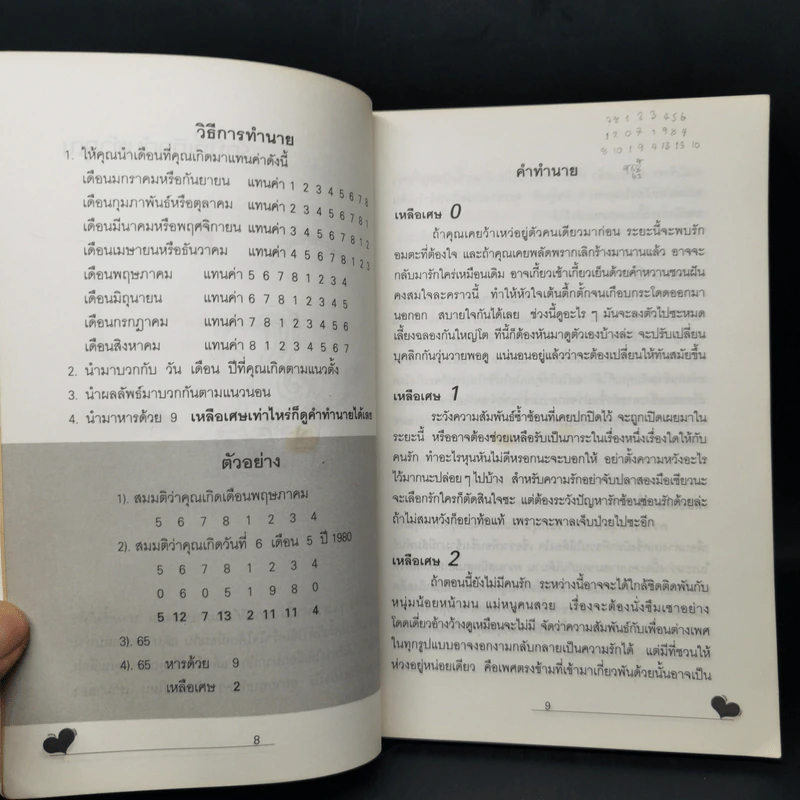 วิธีการทำนาย
1. ให้คุณนำเดือนที่คุณเกิดมาแทนค่าดังนี้
เดือนมกราคมหรือกันยายน แทนค่า 1 2 3 4 5 6 7 8
เดือนกุมภาพันธ์หรือตุลาคม แทนค่า 2 3 4 5 6 7 8 1
เดือนมีนาคมหรือพฤศจิกายน แทนค่า 3 4 5 6 7 8 1 2
เดือนเมษายนหรือธันวาคม แทนค่า 4 5 6 7 8 1 2 3
เดือนพฤษภาคม แทนค่า 5 6 7 8 1 2 3 4
เดือนมิถุนายน แทนค่า 6 7 8 1 2 3 4 5
เดือนกรกฎาคม แทนค่า 7 8 1 2 3 4 5 6
เดือนสิงหาคม แทนค่า 8 1 2 3 4 5 6 7
2. นำมาบวกกับ วัน เดือน ปีที่คุณเกิดตามแนวตั้ง
3. นำผลลัพธ์มาบวกกันตามแนวนอน
4. นำมาหารด้วย 9 เหลือเศษเท่าไหร่ก็ดูคำทำนายได้เลย
ตัวอย่าง
1). สมมติว่าคุณเกิดเดือนพฤษภาคม
5 6 7 8 1 2 3 4
2). สมมติว่าคุณเกิดวันที่ 6 เดือน 5 ปี 1980
5 6 7 8 1 2 3 4
0 6 0 5 1 9 8 0
5 12 7 13 2 11 11 4
3). 65
4). 65 หารด้วย 9
เหลือเศษ 2
8
78 1 2 3 4 5 6
1 2 0 7 1 9 8 4
8 10 1 9 4 13 13 10
คำทำนาย
เหลือเศษ 0
ถ้าคุณเคยว้าเหว่อยู่ตัวคนเดียวมาก่อน ระยะนี้จะพบรัก
อมตะที่ต้องใจ และถ้าคุณเคยพลัดพรากเลิกร้างมานานแล้ว อาจจะ
กลับมารักใคร่เหมือนเดิม อาจเกี้ยวเช้าเกี้ยวเย็นด้วยคำหวานชวนฝัน
คงสมใจละคราวนี้ ทำให้หัวใจเต้นตึ้กตั้กจนเกือบกระโดดออกมา
นอกอก สบายใจกันได้เลย ช่วงนี้ดูอะไร ๆ มันจะลงตัวไปซะหมด
เลี้ยงฉลองกันใหญ่โต ทีนี้ก็ต้องหันมาดูตัวเองบ้างล่ะ จะปรับเปลี่ยน
บุคลิกกันวุ่นวายพอดู แน่นอนอยู่แล้วว่าจะต้องเปลี่ยนให้ทันสมัยขึ้น
เหลือเศษ 1
ระวังความสัมพันธ์ซ้ำซ้อนที่เคยปกปิดไว้ จะถูกเปิดเผยมาใน
ระยะนี้ หรืออาจต้องช่วยเหลือรับเป็นภาระในเรื่องหนึ่งเรื่องใดให้กับ
คนรัก ทำอะไรหุนหันไม่ดีหรอกนะจะบอกให้ อย่าตั้งความหวังอะไร
ไว้มากนะปล่อย ๆ ไปบ้าง สำหรับความรักอย่าจับปลาสองมือเชียวนะ
จะเลือกรักใครก็ตัดสินใจซะ แต่ต้องระวังปัญหารักซ้อนซ่อนรักด้วยล่ะ
ถ้าไม่สมหวังก็อย่าท้อแท้ เพราะจะพาลเจ็บป่วยไปซะอีก
เหลือเศษ 2
ถ้าตอนนี้ยังไม่มีคนรัก ระหว่างนี้อาจจะได้ใกล้ชิดติดพันกับ
หนุ่มน้อยหน้ามน แม่หนูคนสวย เรื่องจะต้องนั่งซึมเซาอย่าง
โดดเดี่ยวอ้างว้างดูเหมือนจะไม่มี จัดว่าความสัมพันธ์กับเพื่อนต่างเพศ
ในทุกรูปแบบอาจงอกงามกลับกลายเป็นความรักได้ แต่มีที่ชวนให้
ห่วงอยู่หน่อยเดียว คือเพศตรงข้ามที่เข้ามาเกี่ยวพันด้วยนั้นอาจเป็น
9